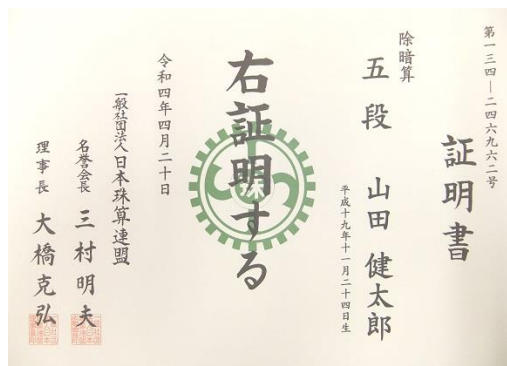 第一三四—二四六九六二号
証明書
除暗算
五段 山田 健太郎
平成十九年十一月二十四日生
右証明する
令和四年四月二十日
一般社団法人日本珠算連盟
名誉会長 三村明夫
理事長 大橋克弘
珠